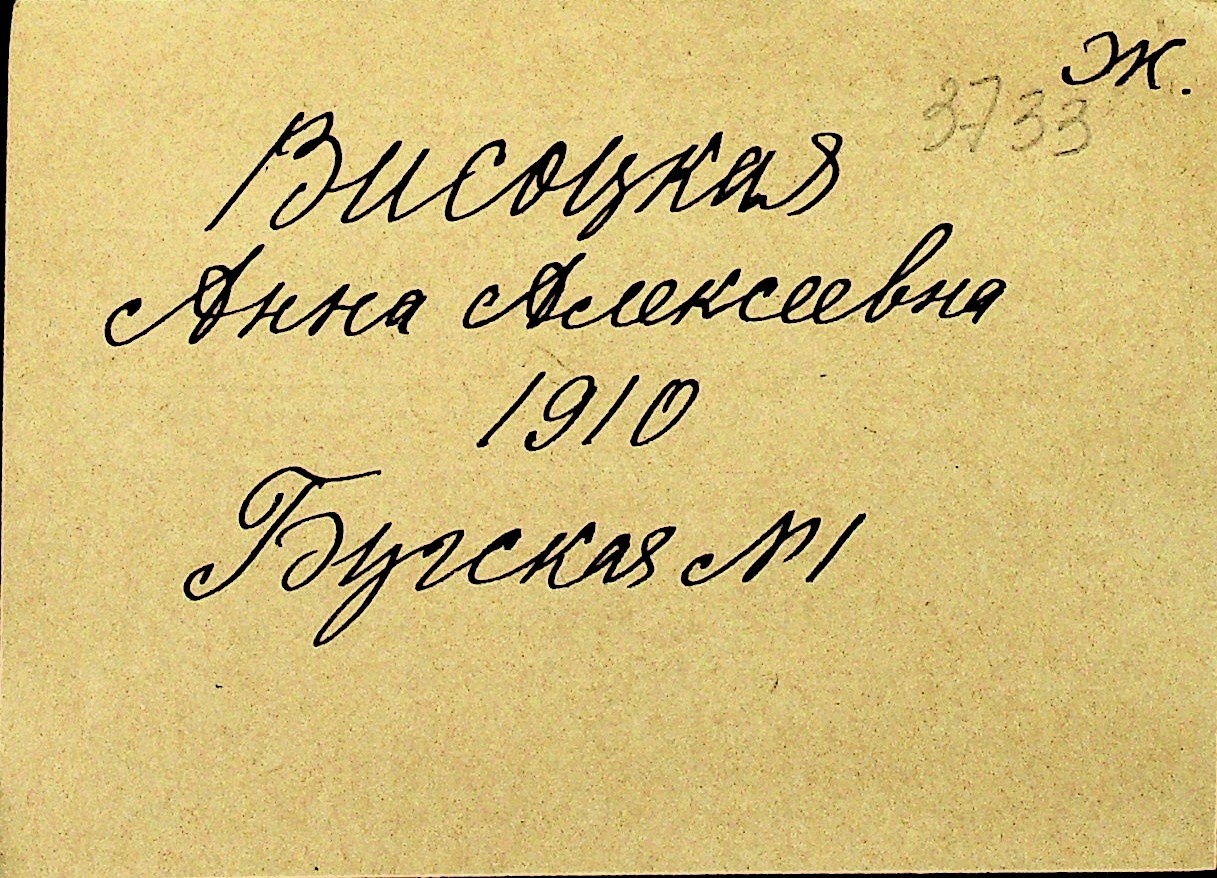 Ж.
3733
Висоцкая
Анна Алексеевна
1910
Бугская №1